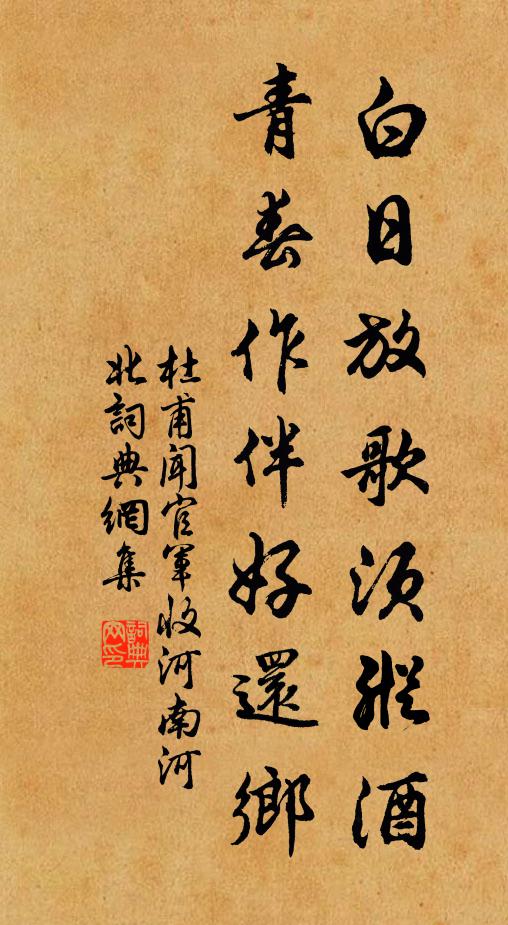 白日放歌須縱酒
青春作伴好還鄉
杜甫聞官軍收河南河
北詞典網集
詞典網印